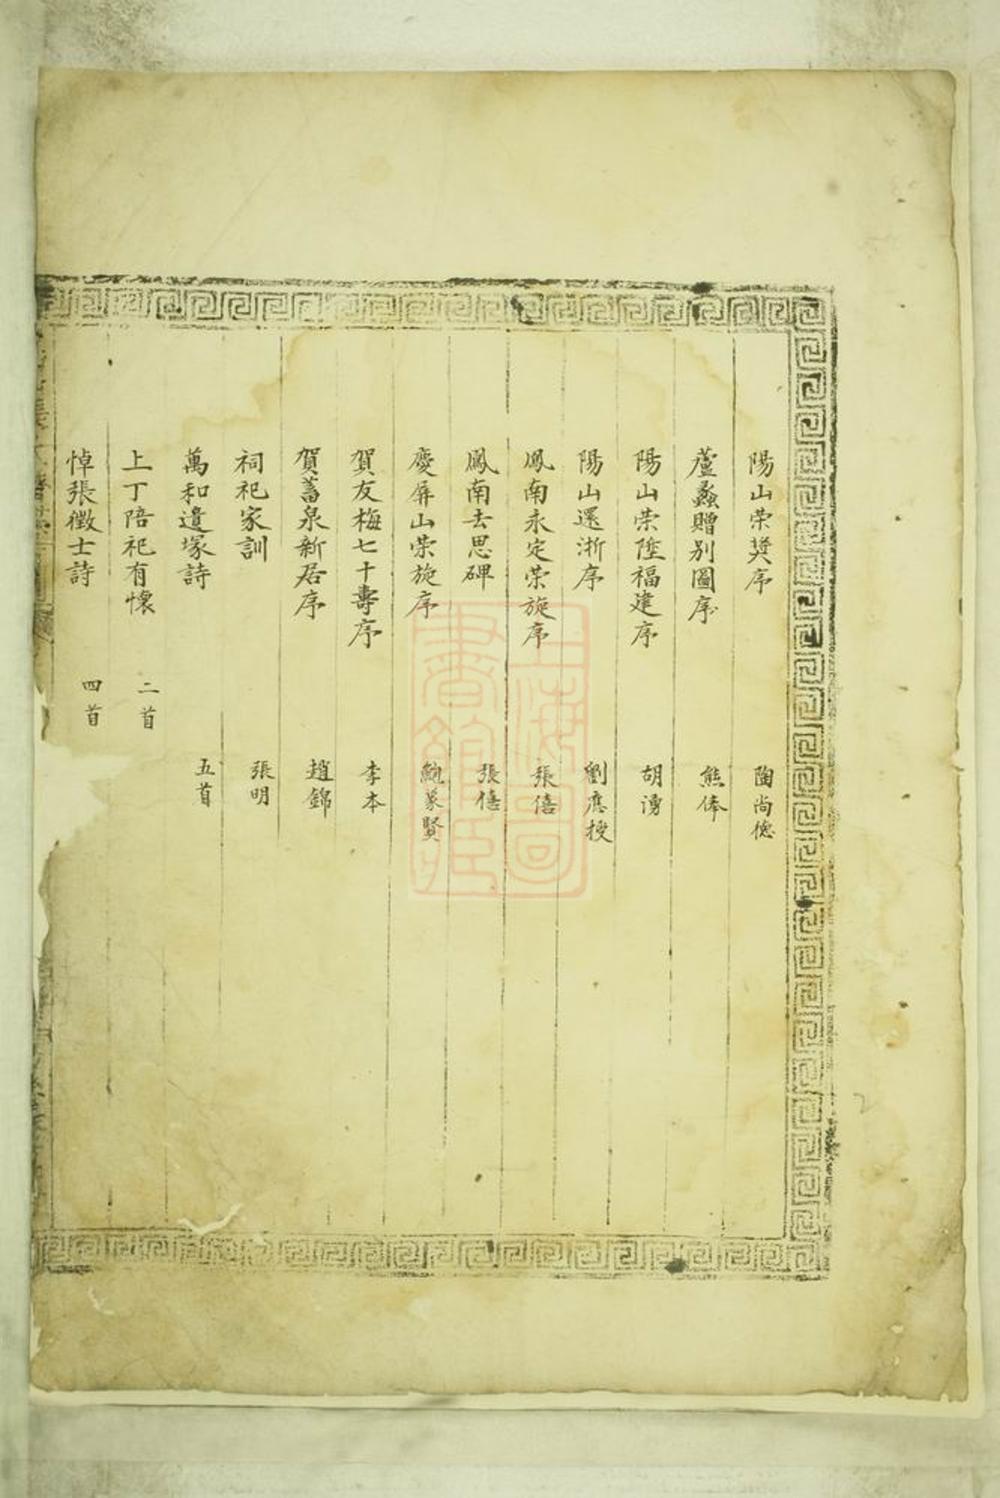 陽山荣奨序 陶尚德
蘆蠡贈別圖序 熊俸
陽山荣陞福建序 胡湧
陽山還浙序 劉應授
鳳南永定荣旋序 張僖
鳳南去思碑 張僖
慶屏山荣旋序 鮑象賢
賀友梅七十壽序 李本
賀蓄泉新居序 趙錦
祠祀家訓 張明
萬和遺塚詩 五首
上丁陪祀有懷 二首
悼張徵士詩 四首
上海圖書館藏